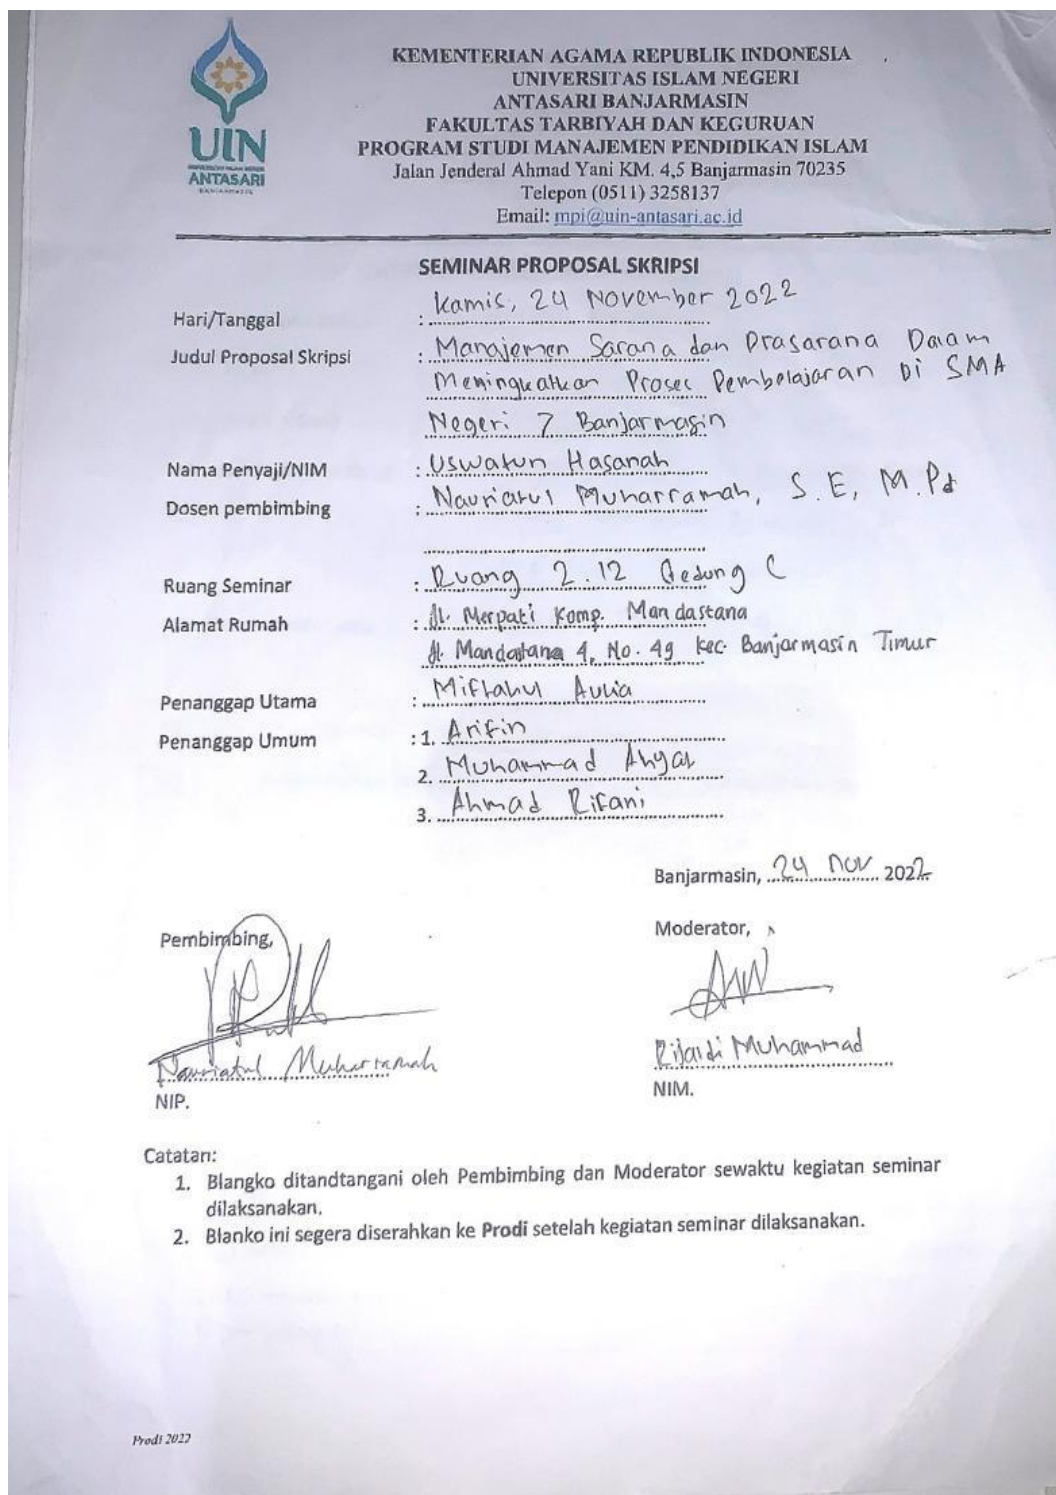 UIN
UNIVERSITAS ISLAM NEGERI
ANTASARI
BANJARMASIN
KEMENTERIAN AGAMA REPUBLIK INDONESIA
UNIVERSITAS ISLAM NEGERI
ANTASARI BANJARMASIN
FAKULTAS TARBIYAH DAN KEGURUAN
PROGRAM STUDI MANAJEMEN PENDIDIKAN ISLAM
Jalan Jenderal Ahmad Yani KM. 4,5 Banjarmasin 70235
Telepon (0511) 3258137
Email: mpi@uin-antasari.ac.id
SEMINAR PROPOSAL SKRIPSI
Hari/Tanggal : Kamis, 24 November 2022
Judul Proposal Skripsi : Manajemen Sarana dan Prasarana Dalam
Meningkatkan Proses Pembelajaran Di SMA
Negeri 7 Banjarmasin
Nama Penyaji/NIM : Uswatun Hasanah
Dosen pembimbing : Nauriatul Muharramah, S.E, M.Pd
Ruang Seminar : Ruang 2.12 Gedung C
Alamat Rumah : Jl. Merpati Komp. Mandastana
Jl. Mandastana 4, No. 49 kec. Banjarmasin Timur
Penanggap Utama : Miftahul Aulia
Penanggap Umum : 1. Arifin
2. Muhammad Ahyar
3. Ahmad Rifani
Banjarmasin, 24 Nov 2022
Pembimbing, Moderator,
Nauriatul Muharramah Rijaldi Muhammad
NIP. NIM.
Catatan:
1. Blangko ditandtangani oleh Pembimbing dan Moderator sewaktu kegiatan seminar
dilaksanakan.
2. Blanko ini segera diserahkan ke Prodi setelah kegiatan seminar dilaksanakan.
Prodi 2022